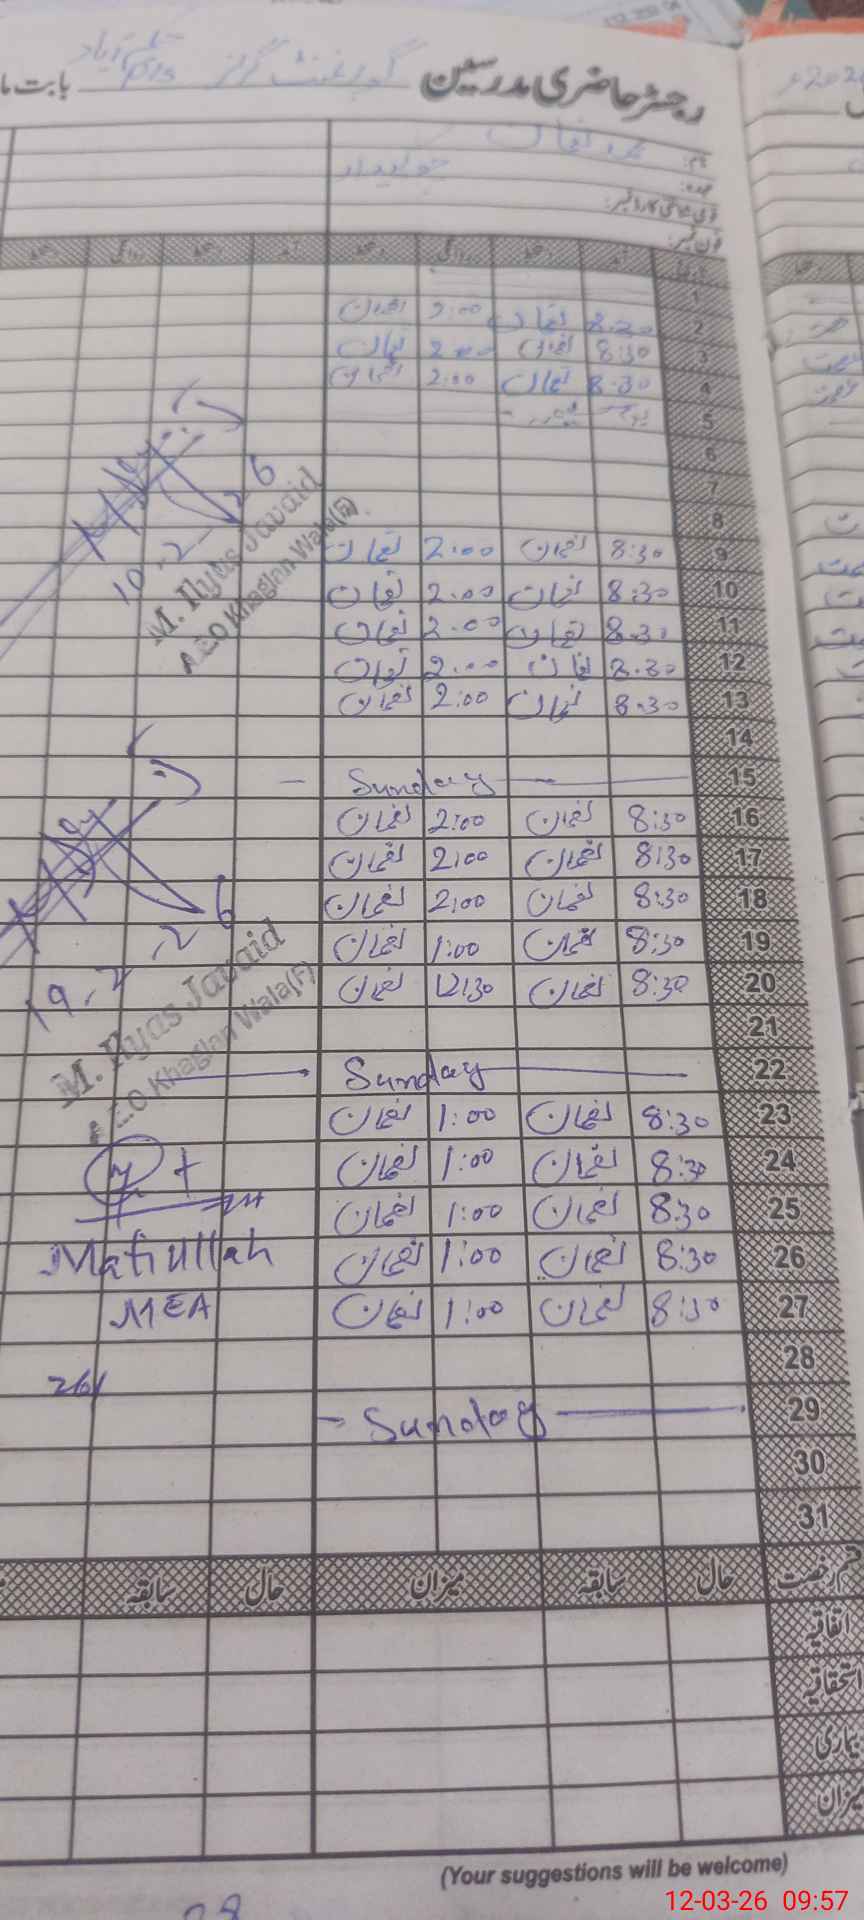 رجسٹر حاضری مدرسین گورنمنٹ گرلز بابت ما
نام: لقمان
عہدہ: چوکیدار
قومی شناختی کارڈ نمبر:
فون نمبر:
آمد دستخط روانگی دستخط آمد دستخط روانگی دستخط
1
2 8:30 لقمان 2:00 لقمان
3 8:30 لقمان 2:00 لقمان
4 8:30 لقمان 2:00 لقمان
5
6
7
8
9 8:30 لقمان 2:00 لقمان
10 8:30 لقمان 2:00 لقمان
11 8:30 لقمان 2:00 لقمان
12 8:30 لقمان 2:00 لقمان
13 8:30 لقمان 2:00 لقمان
14
15 Sunday
16 8:30 لقمان 2:00 لقمان
17 8:30 لقمان 2:00 لقمان
18 8:30 لقمان 2:00 لقمان
19 8:30 لقمان 1:00 لقمان
20 8:30 لقمان 12:30 لقمان
21
22 Sunday
23 8:30 لقمان 1:00 لقمان
24 8:30 لقمان 1:00 لقمان
25 8:30 لقمان 1:00 لقمان
26 8:30 لقمان 1:00 لقمان
27 8:30 لقمان 1:00 لقمان
28
29 Sunday
30
31
10-2-26
M. Ilyas Javaid
AEO Khaglan Wala(F)
19-2-26
M. Ilyas Javaid
AEO Khaglan Wala(F)
Matiullah
MEA
حال سابقہ میزان حال سابقہ
اتفاقیہ
استحقاقیہ
بیماری
میزان
(Your suggestions will be welcome)
12-03-26 09:57